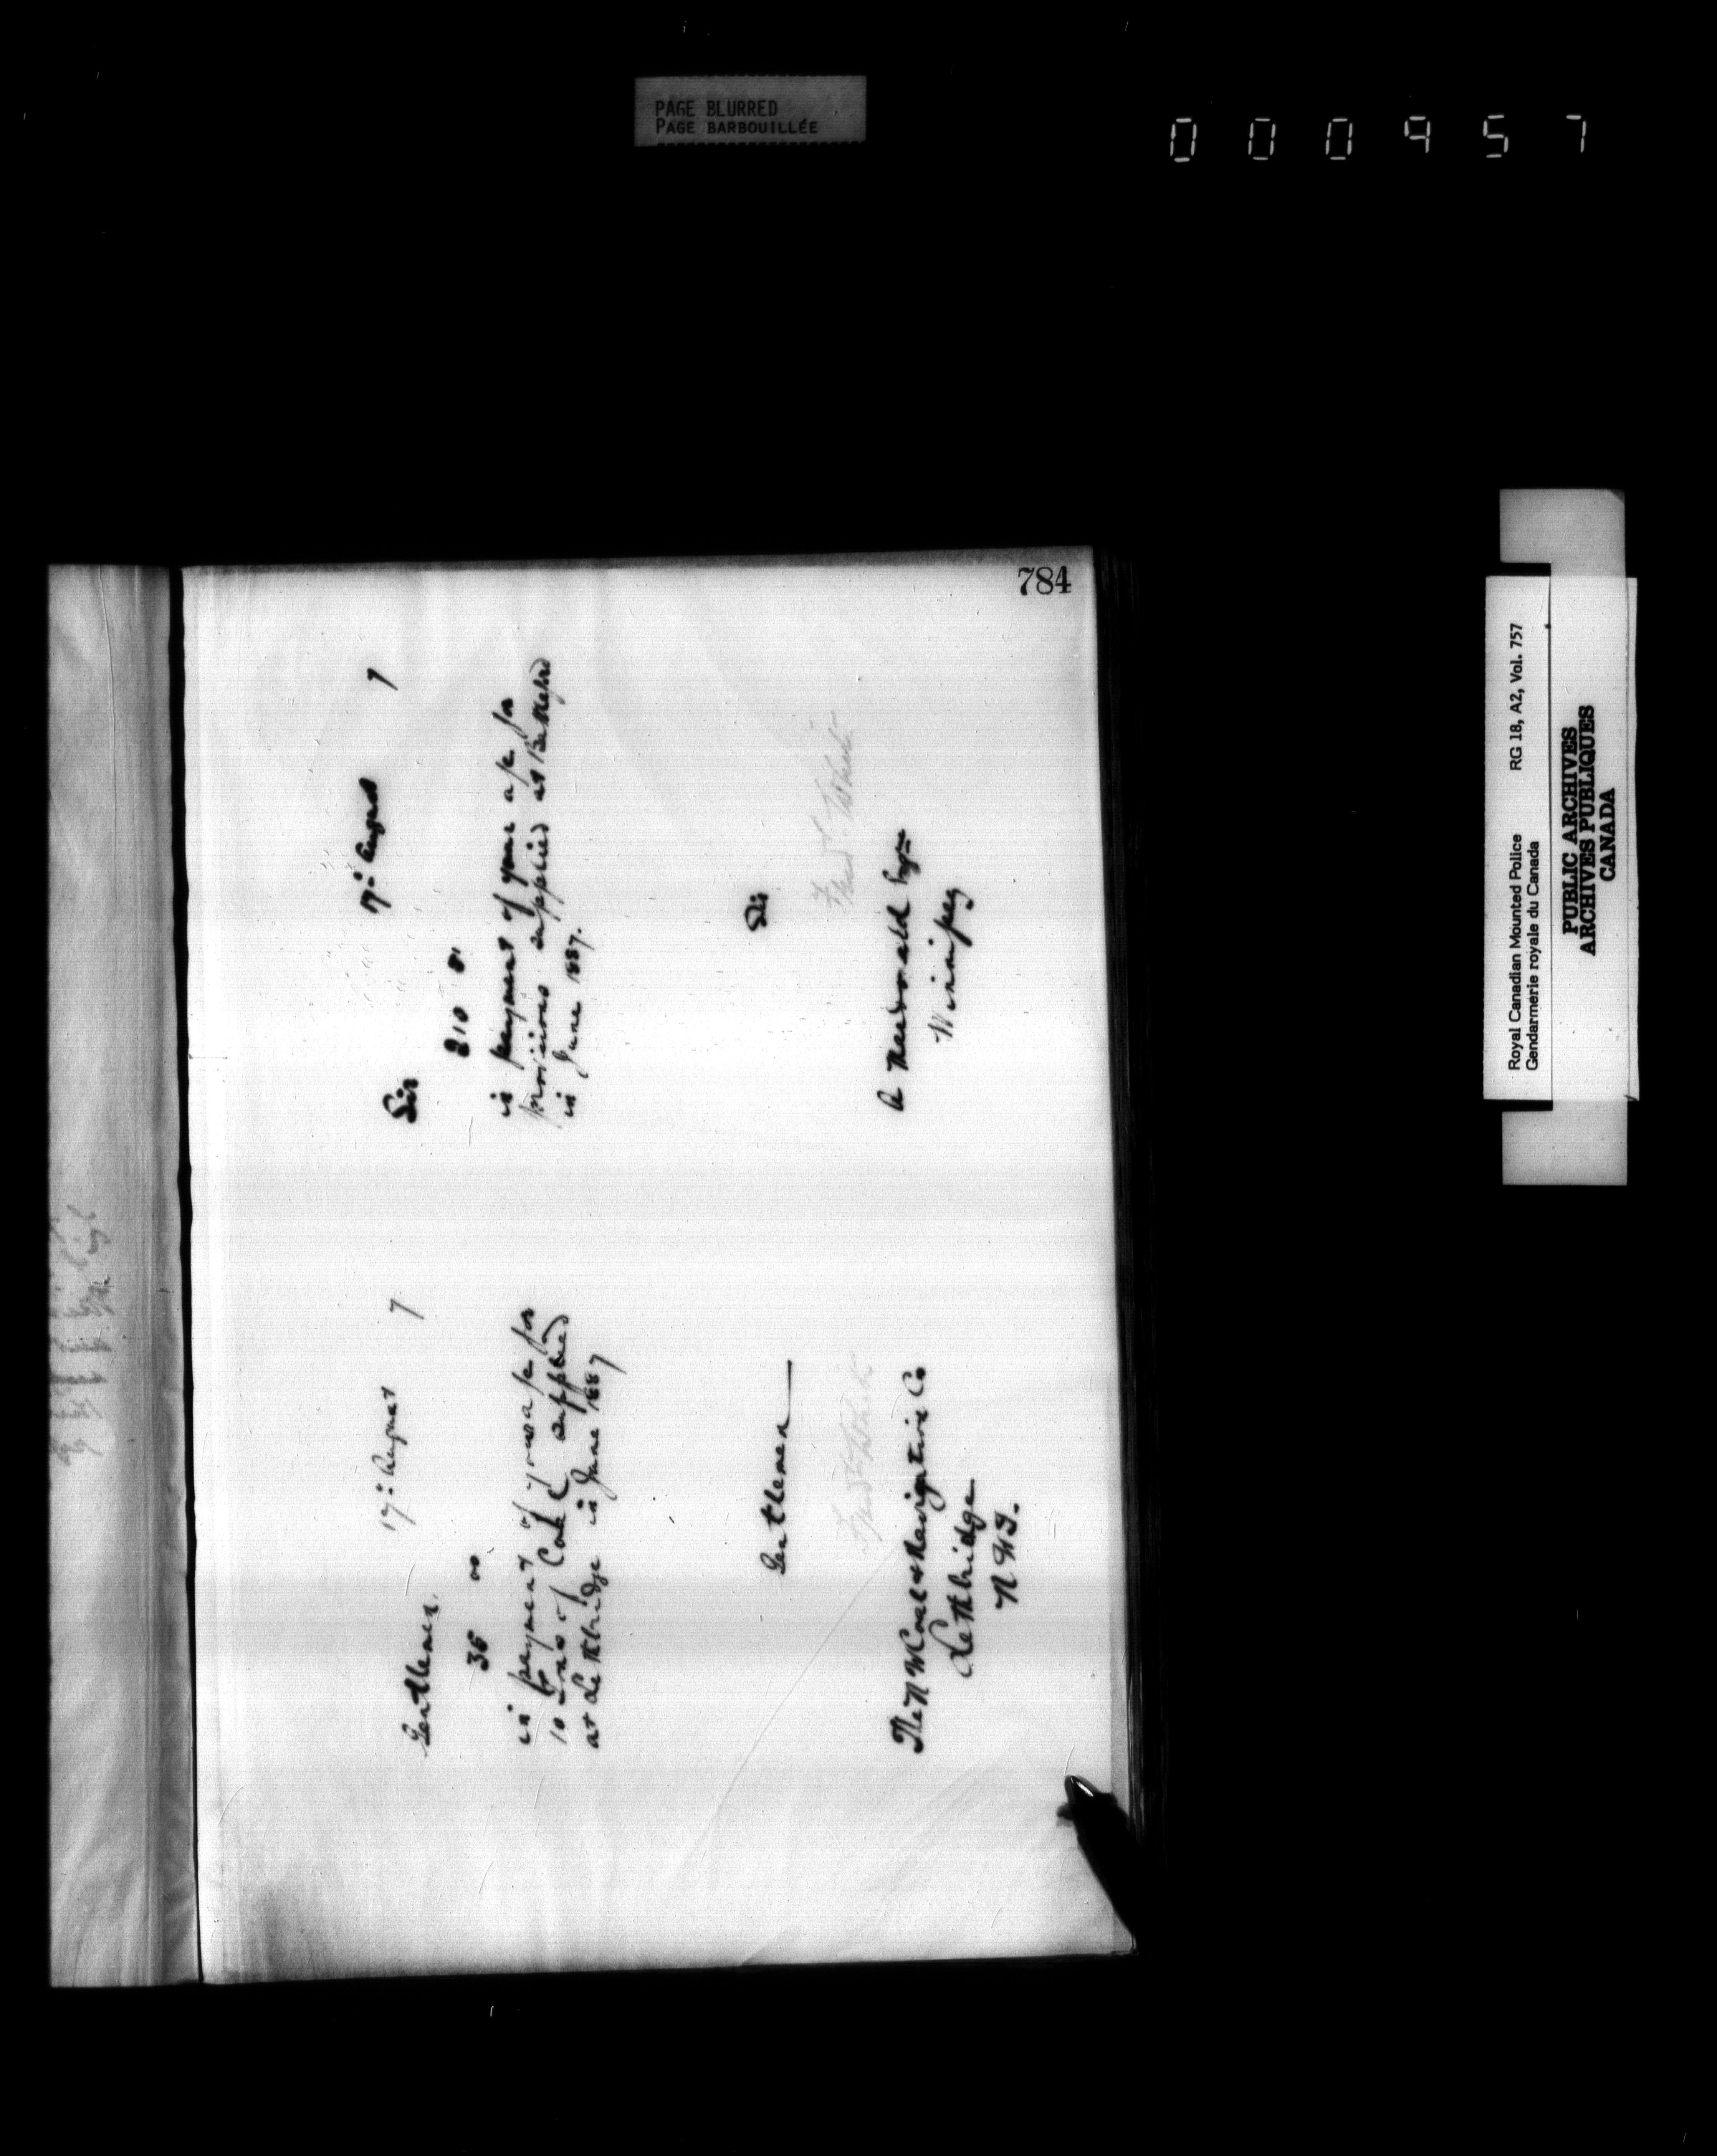 PAGE BLURRED
PAGE BARBOUILLÉE
000957
784
17th August 7
Gentlemen.
35 00
in payment of your a/c for
10 Tons of Coal supplied
at Lethbridge in June 1887
Gentlemen
Fred White
The N W Coal & Navigation Co
Lethbridge
N W T.
17th August 7
Sir
210 81
in payment of your a/c for
provisions supplied at Battleford
in June 1887.
Sir
Fred White
A Macdonald Esqre
Winnipeg
Royal Canadian Mounted Police RG 18, A2, Vol. 757
Gendarmerie royale du Canada
PUBLIC ARCHIVES
ARCHIVES PUBLIQUES
CANADA